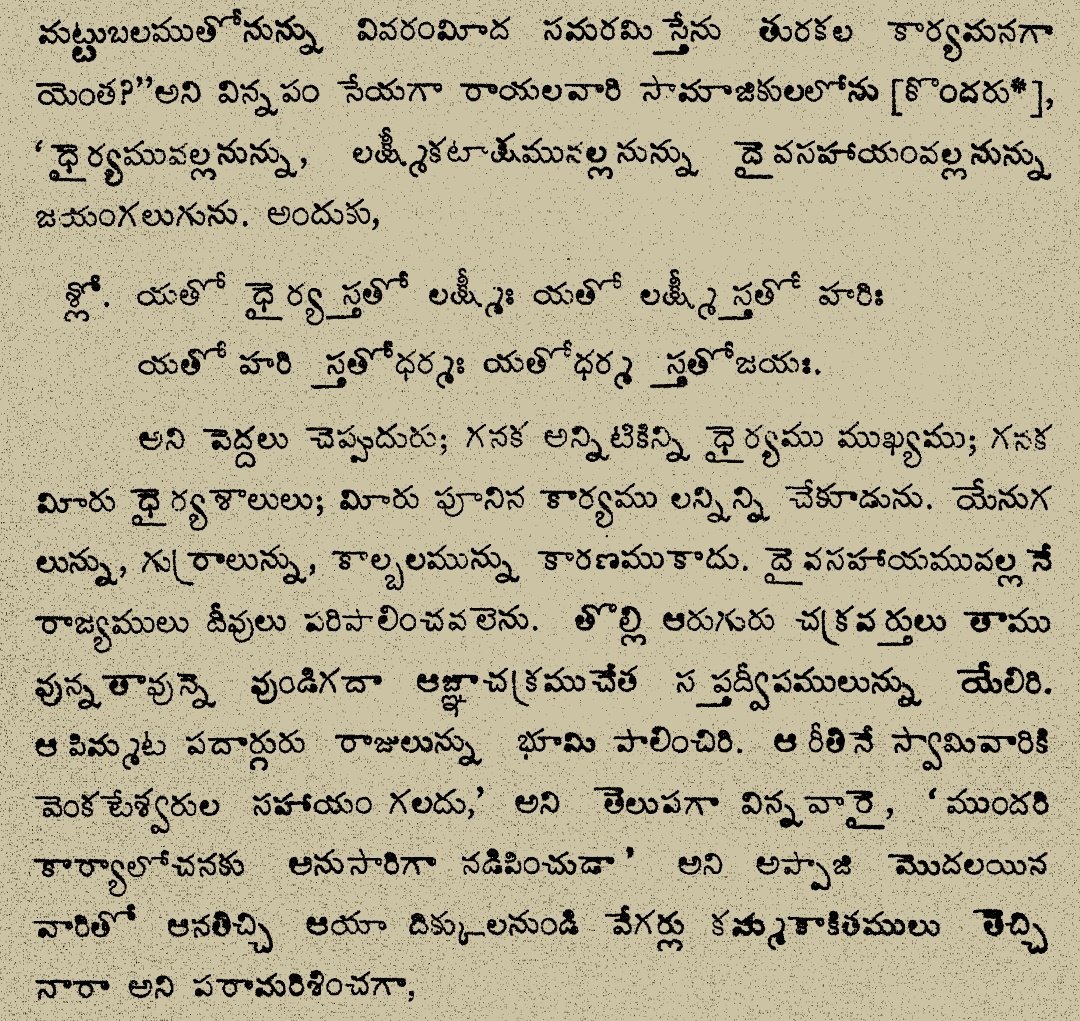 మట్టుబలముతోనున్ను వివరంమీద సమరమి స్తేను తురకల కార్యమనగా
యెంత?”అని విన్నపం సేయగా రాయలవారి సామాజికులలోను [కొందరు*],
‘ధైర్యమువల్లనున్ను, లక్ష్మీకటాక్షమునల్లనున్ను దైవసహాయంవల్లనున్ను
జయంగలుగును. అందుకు,
శ్లో. యతో ధైర్య స్తతో లక్ష్మీః యతో లక్ష్మీ స్తతో హరిః
యతో హరి స్తతోధర్మః యతోధర్మ స్తతోజయః.
అని పెద్దలు చెప్పుదురు; గనక అన్నిటికిన్ని ధైర్యము ముఖ్యము; గనక
మీరు ధైర్యశాలులు; మీరు పూనిన కార్యము లన్నిన్ని చేకూడును. యేనుగ
లున్ను, గుర్రాలున్ను, కాల్బలమున్ను కారణముకాదు. దైవసహాయమువల్లనే
రాజ్యములు దీవులు పరిపాలించవలెను. తొల్లి ఆరుగురు చక్రవర్తులు తాము
వున్నతావున్నె వుండిగదా ఆజ్ఞాచక్రముచేత సప్తద్వీపములున్ను యేలిరి.
ఆ పిమ్మట పదార్గురు రాజులున్ను భూమి పాలించిరి. ఆ రీతినే స్వామివారికి
వెంకటేశ్వరుల సహాయం గలదు,’ అని తెలుపగా విన్నవారై, ‘ముందరి
కార్యాలోచనకు అనుసారిగా నడిపించుడా’ అని అప్పాజి మొదలయిన
వారితో ఆనతిచ్చి ఆయా దిక్కులనుండి వేగర్లు కమ్మకాకితములు తెచ్చి
నారా అని పరామరిశించగా,